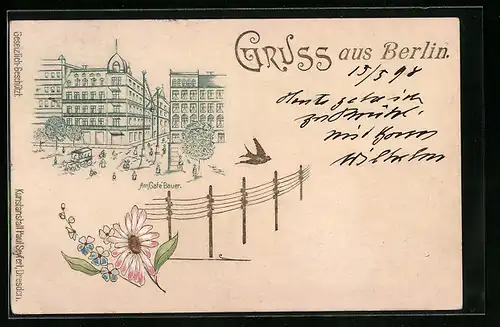 Gesetzlich Geschützt.
GRUSS aus Berlin.
15/5 98
Heute
mit
Wilhelm
Am Café Bauer.
Kunstanstalt Paul Seyfert, Dresden.